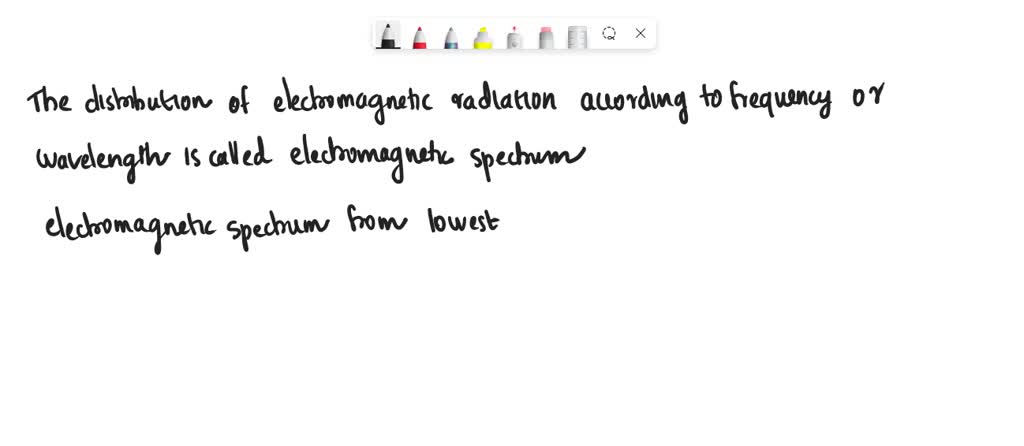 The distribution of electromagnetic radiation according to frequency or
wavelength is called electromagnetic spectrum
electromagnetic spectrum from lowest